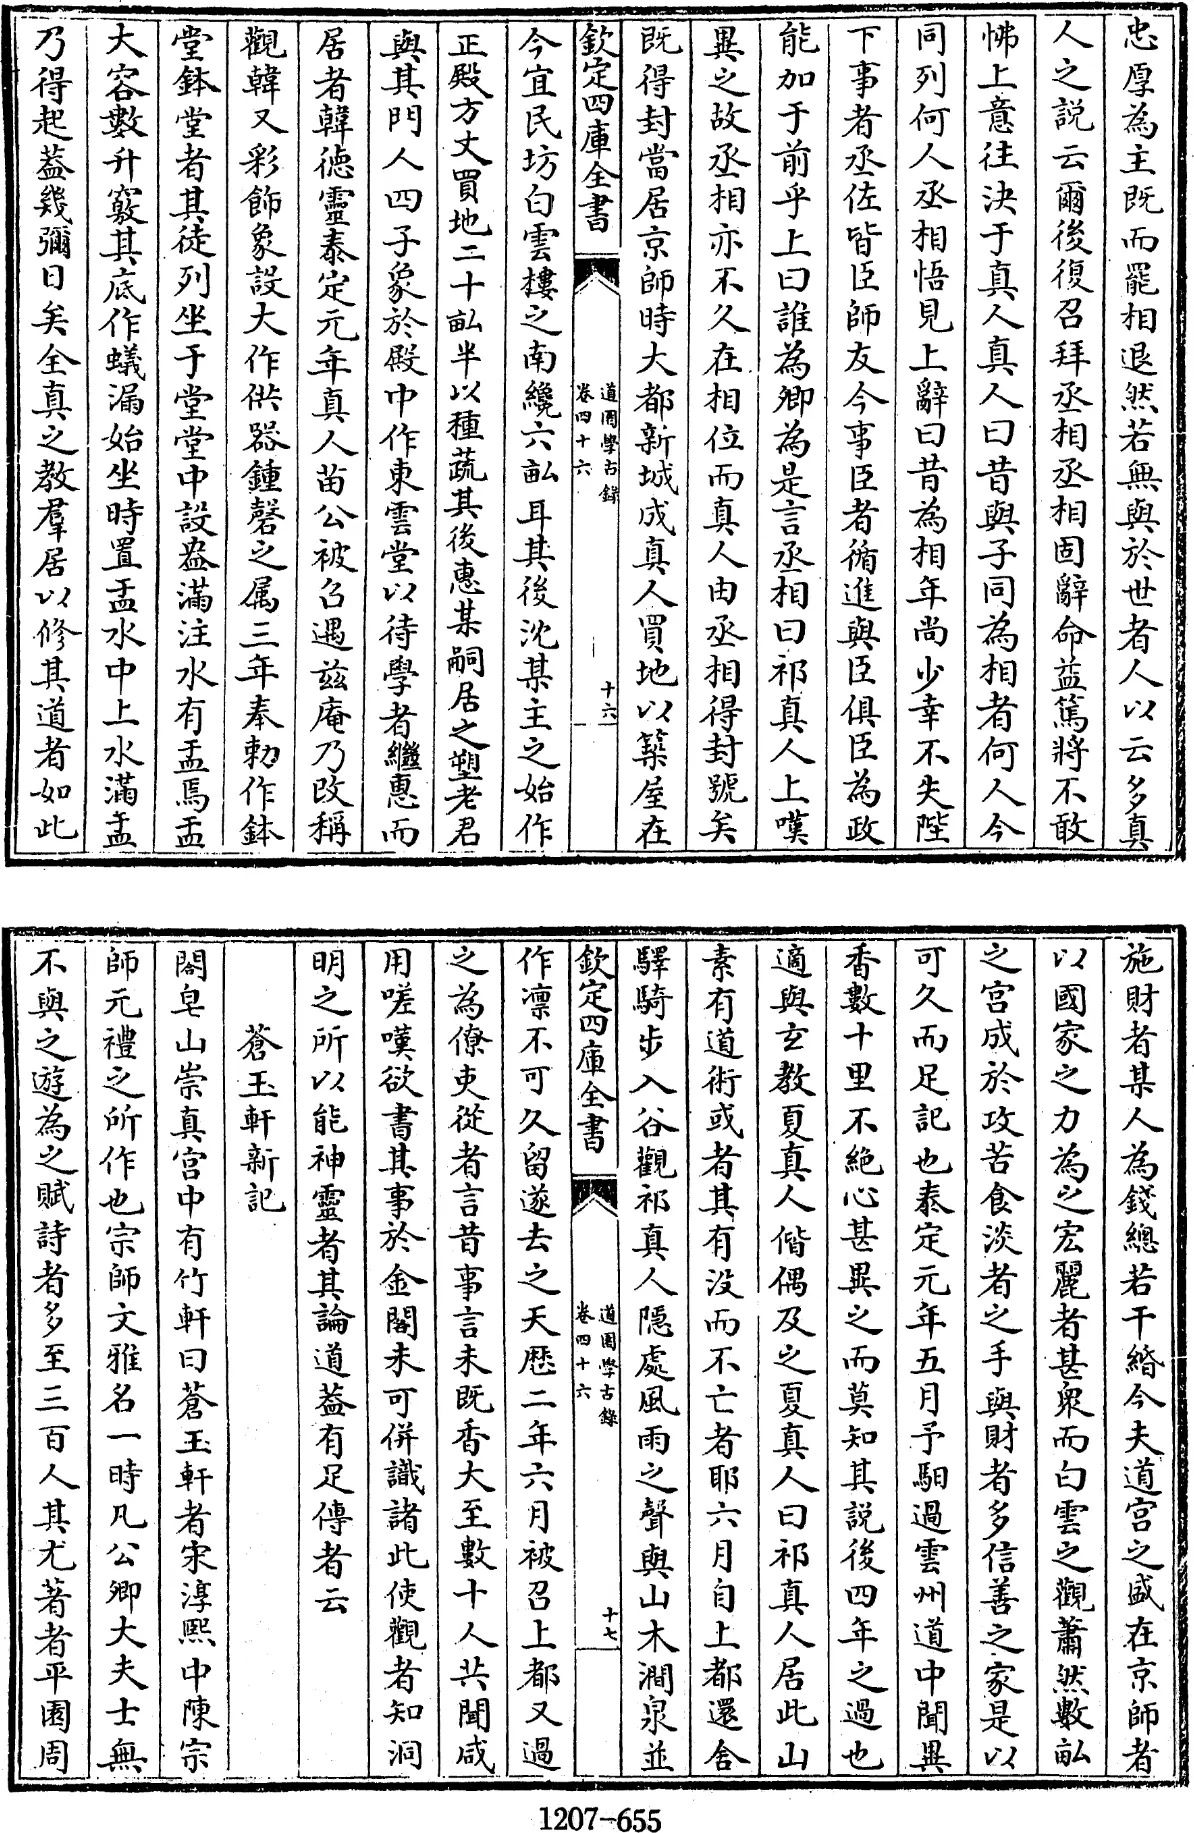 忠厚為主既而罷相退然若無與於世者人以云多真
人之說云爾後復召拜丞相丞相固辭命益篤將不敢
怫上意往決于真人真人曰昔與子同為相者何人今
同列何人丞相悟見上辭曰昔為相年尚少幸不失陛
下事者丞佐皆臣師友今事臣者循進與臣俱臣為政
能加于前乎上曰誰為卿為是言丞相曰祁真人上嘆
異之故丞相亦不久在相位而真人由丞相得封號矣
既得封當居京師時大都新城成真人買地以築屋在
欽定四庫全書
道園學古錄
卷四十六
十六
今宜民坊白雲樓之南纔六畝耳其後沈某主之始作
正殿方丈買地二十畝半以種蔬其後惠某嗣居之塑老君
與其門人四子象於殿中作東雲堂以待學者繼惠而
居者韓徳靈泰定元年真人苗公被召遇兹庵乃改稱
觀韓又彩飾象設大作供器鍾磬之属三年奉勅作鉢
堂鉢堂者其徒列坐于堂堂中設盎滿注水有盂焉盂
大容數升竅其底作蟻漏始坐時置盂水中上水滿盂
乃得起葢幾彌日矣全真之教羣居以修其道者如此
施財者某人為錢總若干緡今夫道宫之盛在京師者
以國家之力為之宏麗者甚衆而白雲之觀蕭然數畝
之宫成於攻苦食淡者之手與財者多信善之家是以
可久而足記也泰定元年五月予馹過雲州道中聞異
香數十里不絶心甚異之而莫知其説後四年之過也
適與玄教夏真人偕偶及之夏真人曰祁真人居此山
素有道術或者其有没而不亡者耶六月自上都還舍
驛騎步入谷觀祁真人隠處風雨之聲與山木澗泉並
欽定四庫全書
道園學古錄
卷四十六
十七
作凛不可久留遂去之天歴二年六月被召上都又過
之為僚吏從者言昔事言未既香大至數十人共聞咸
用嗟嘆欲書其事於金閣未可併識諸此使觀者知洞
明之所以能神靈者其論道葢有足傳者云
蒼玉軒新記
閤皂山崇真宫中有竹軒曰蒼玉軒者宋淳熙中陳宗
師元禮之所作也宗師文雅名一時凡公卿大夫士無
不與之遊為之賦詩者多至三百人其尤著者平園周
1207-655